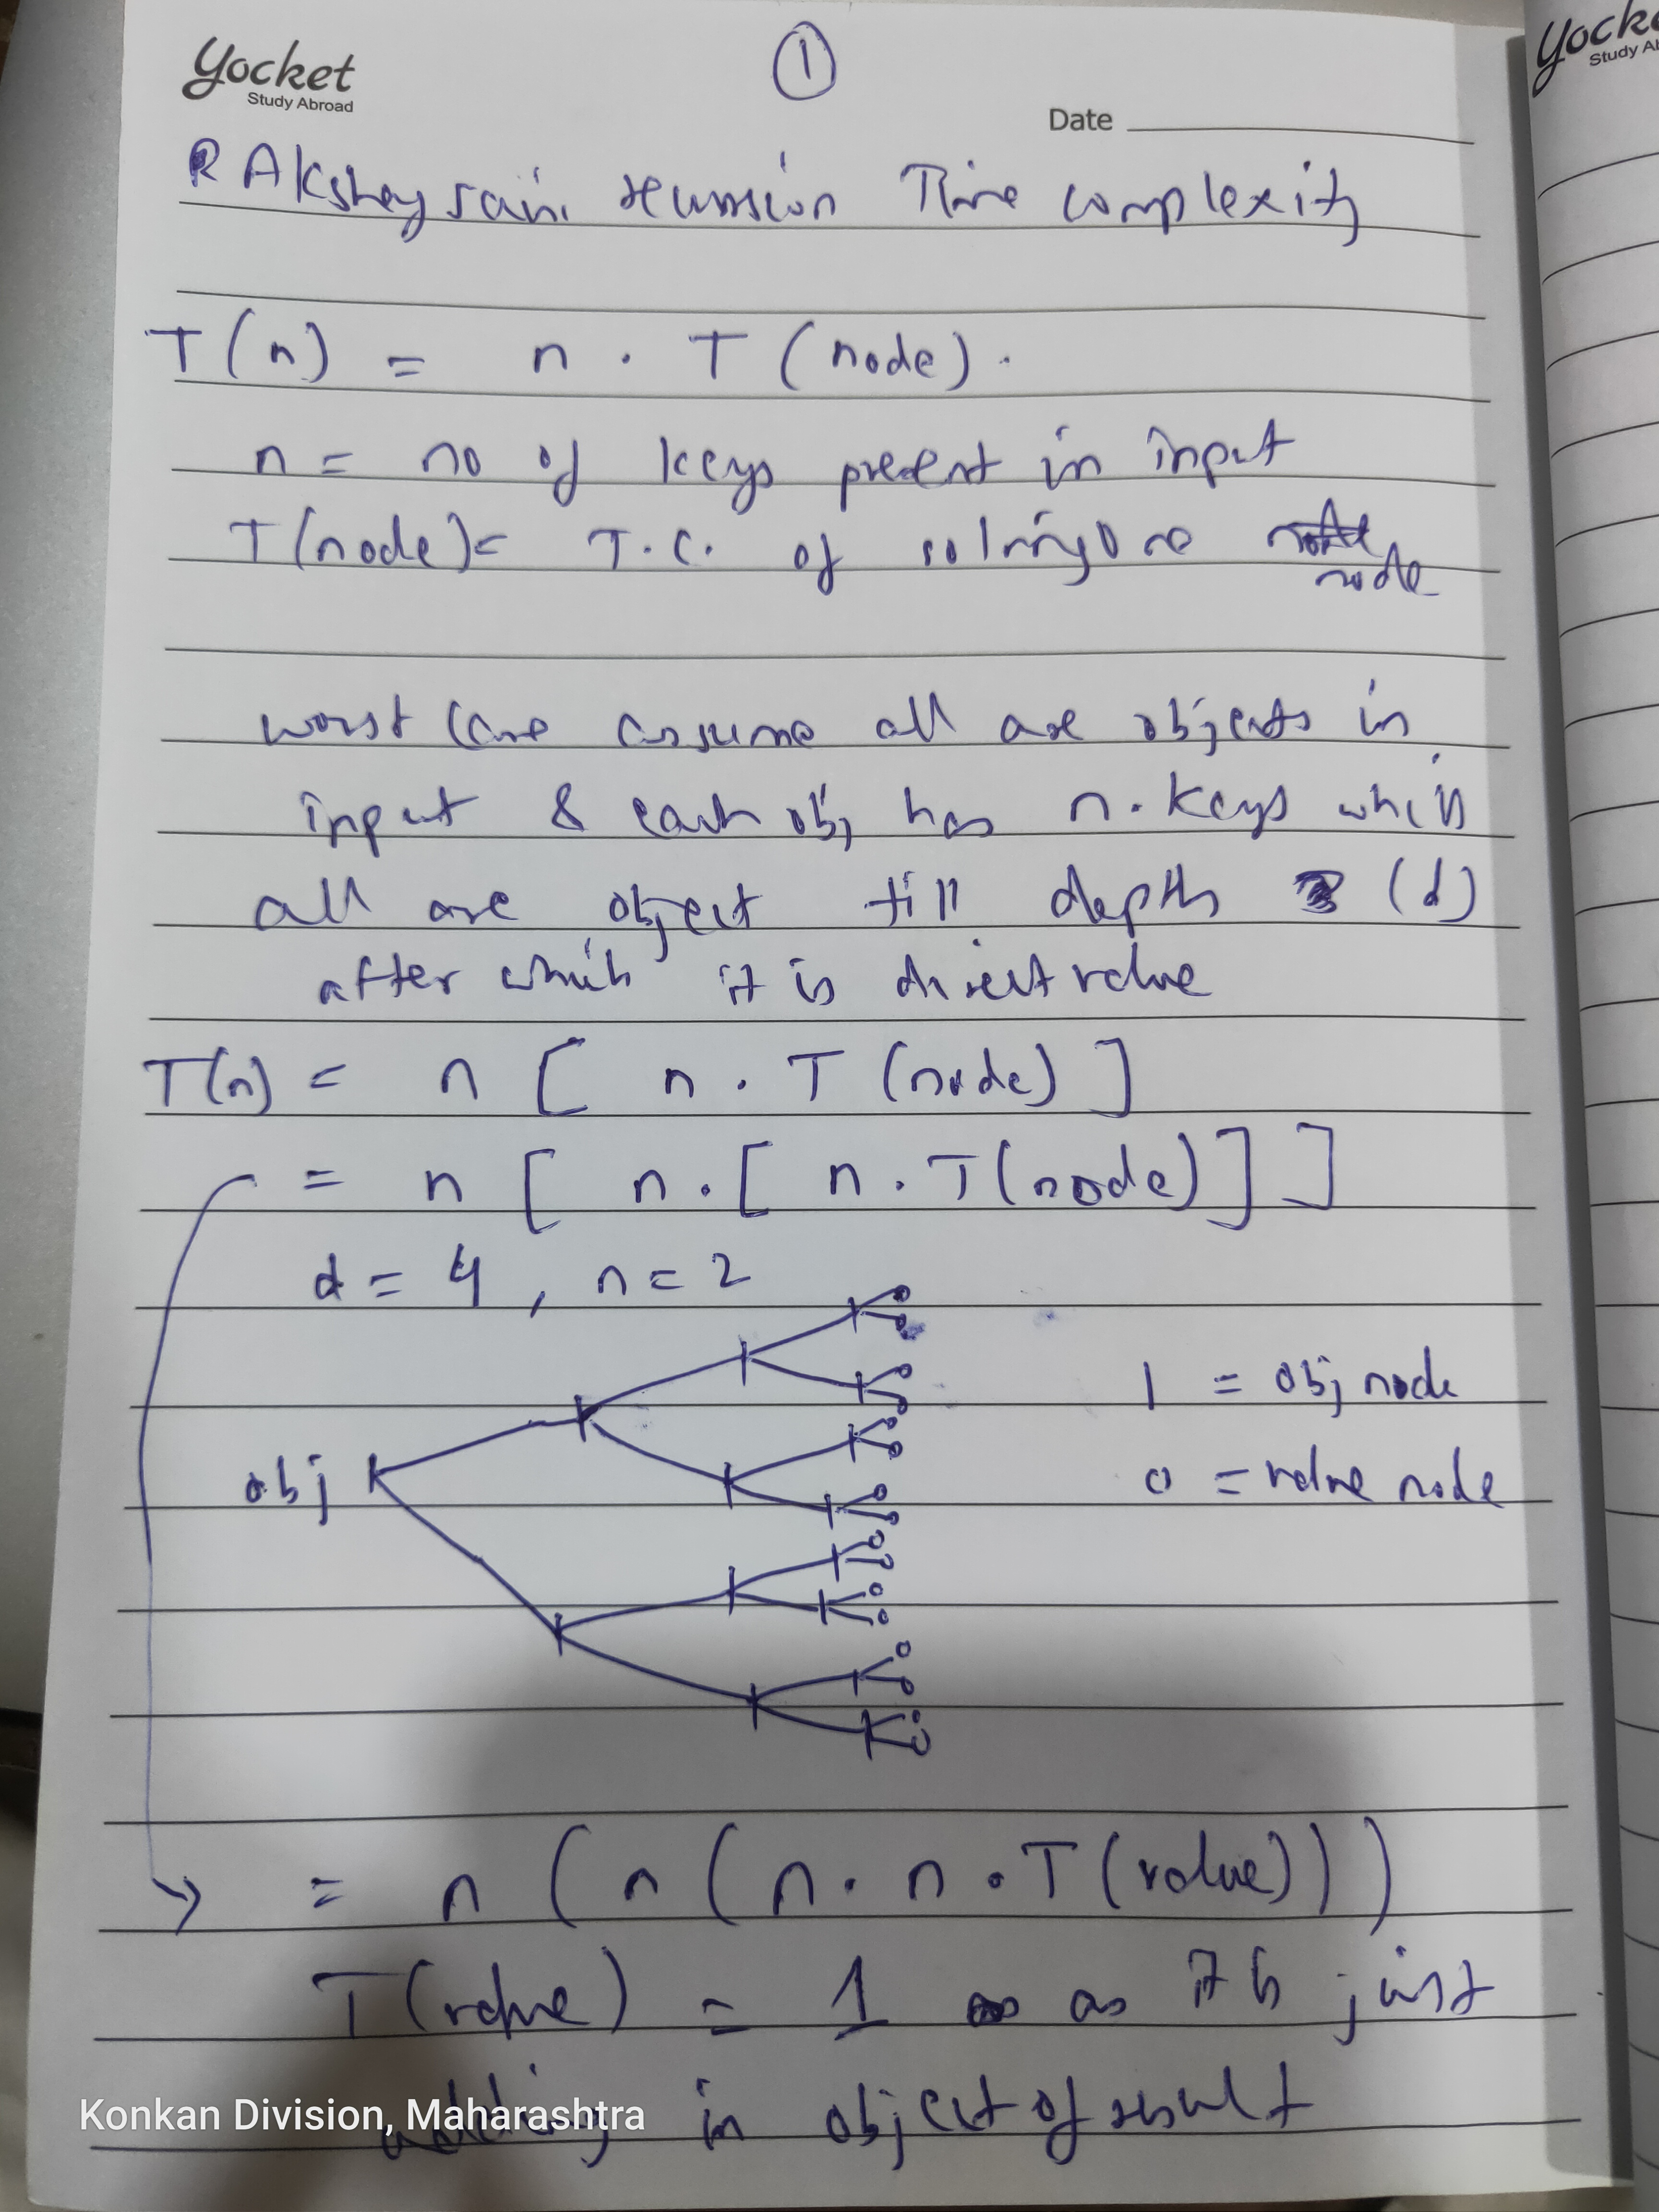 yocket
Study Abroad
①
yocke
Study Ab
Date
R Akshay saini recursion Time complexity
T(n) = n . T (node) .
n = no of keys present in input
T(node) = T.C. of solving one node
worst case assume all are objects in
input & each obj has n. keys which
all are object till depth (d)
after which it is direct value
T(n) = n [ n . T (node) ]
= n [ n . [ n . T(node) ] ]
d = 4 , n = 2
obj
1 = obj node
0 = value node
→ = n ( n ( n . n . T (value) ) )
T(value) = 1 as it is just
adding in object of result
Konkan Division, Maharashtra